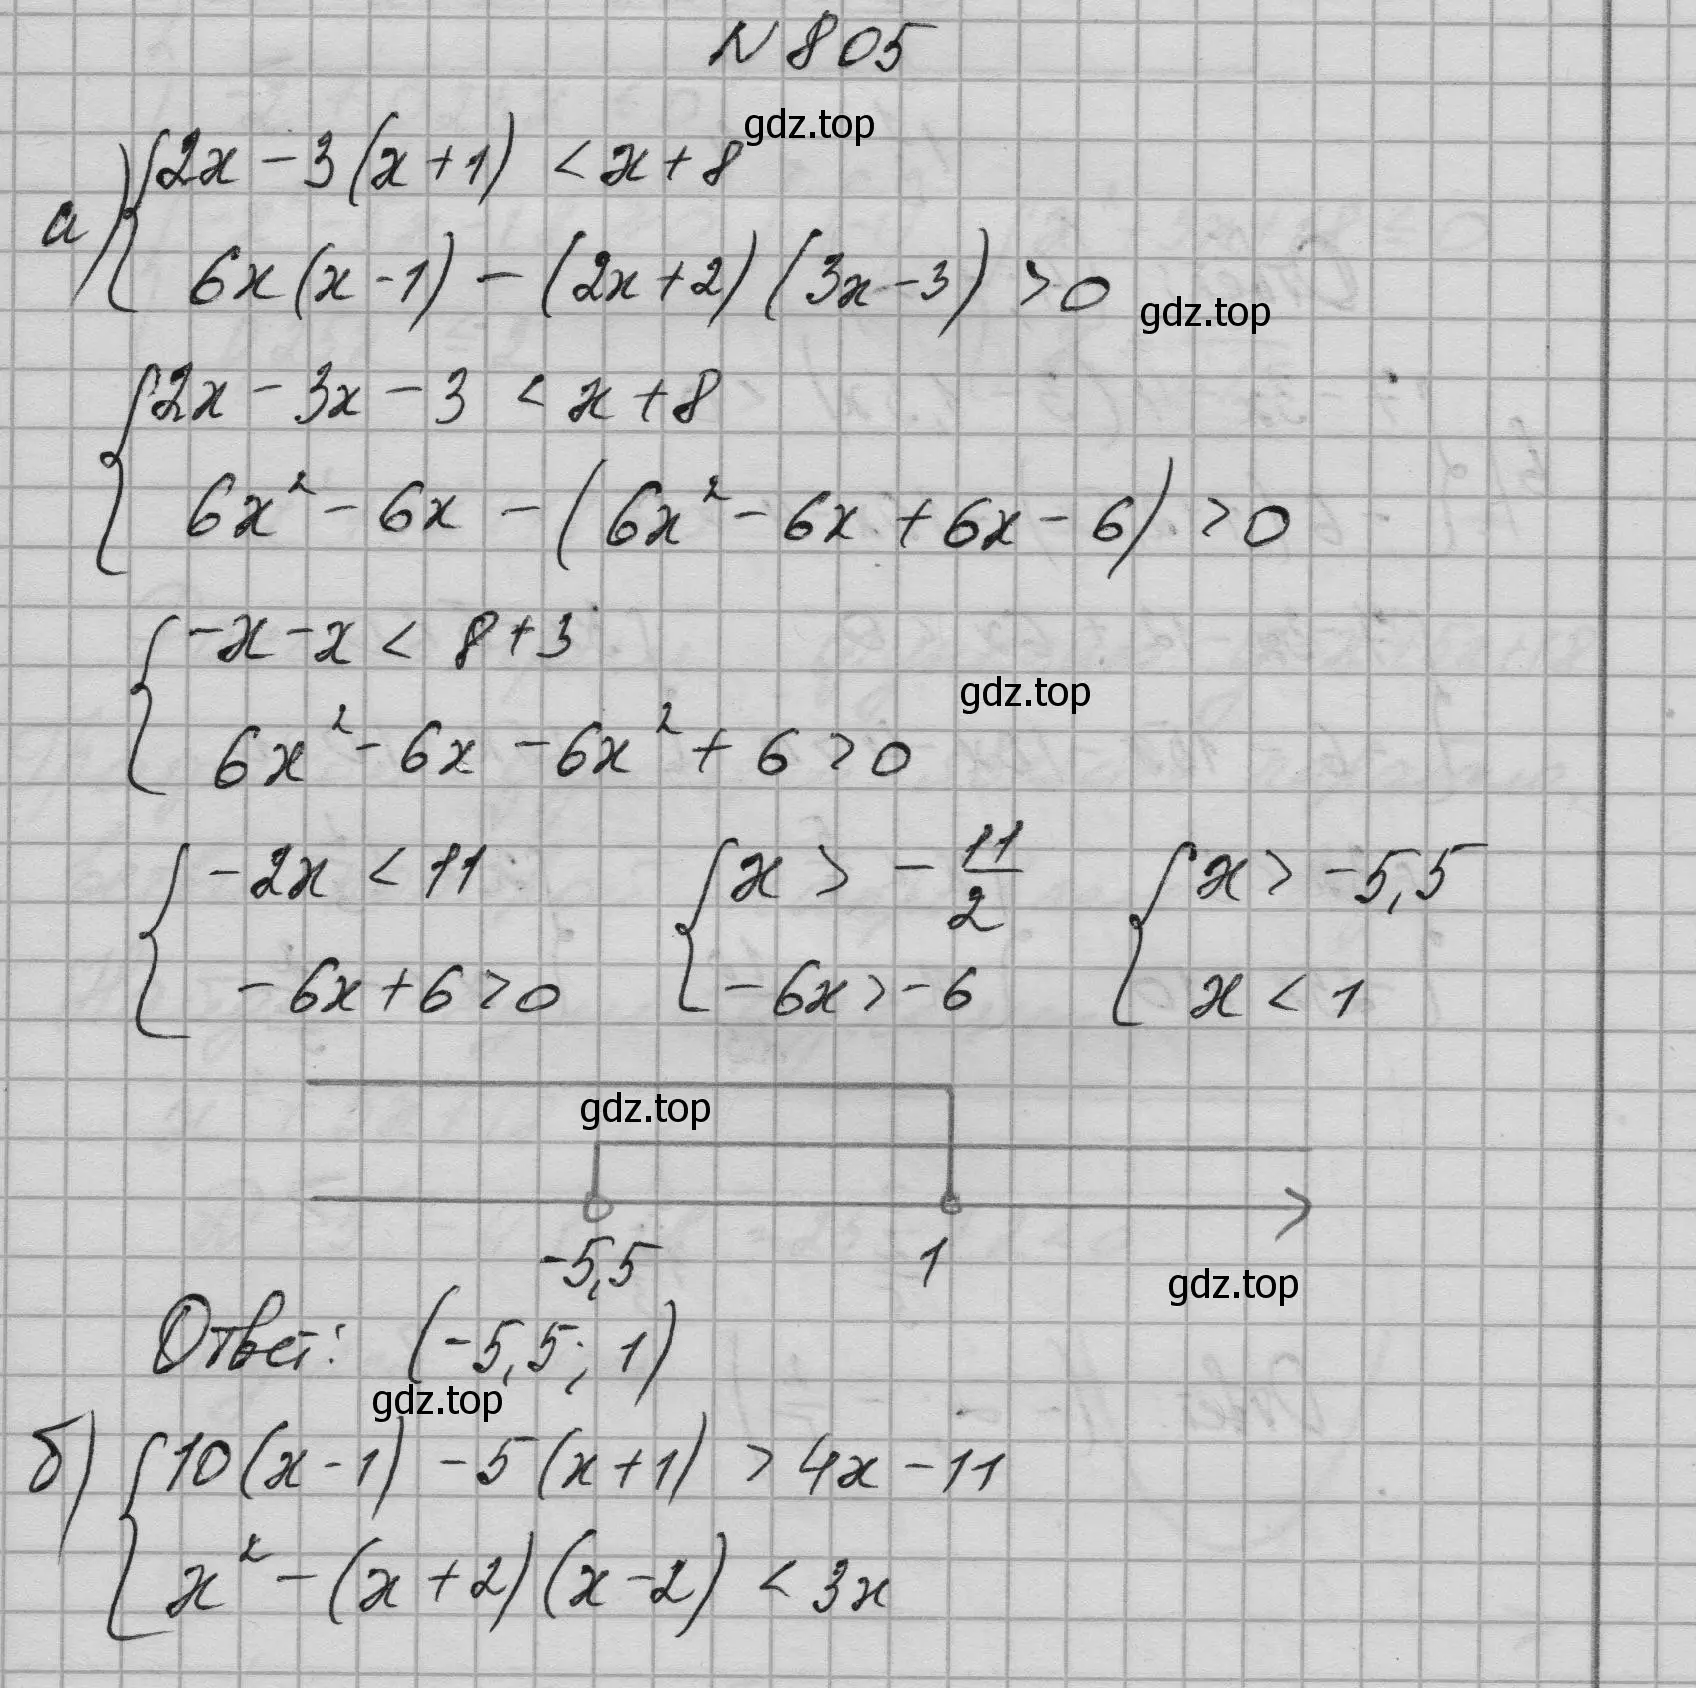 N 805
gdz.top
а) { 2x - 3(x+1) < x+8
6x(x-1) - (2x+2)(3x-3) > 0
gdz.top
{ 2x - 3x - 3 < x+8
6x² - 6x - (6x² - 6x + 6x - 6) > 0
{ -x - x < 8+3
gdz.top
6x² - 6x - 6x² + 6 > 0
{ -2x < 11 { x > - 11/2 { x > -5,5
-6x + 6 > 0 -6x > -6 x < 1
gdz.top
-5,5 1
gdz.top
Ответ: (-5,5; 1)
gdz.top
б) { 10(x-1) - 5(x+1) > 4x - 11
x² - (x+2)(x-2) < 3x